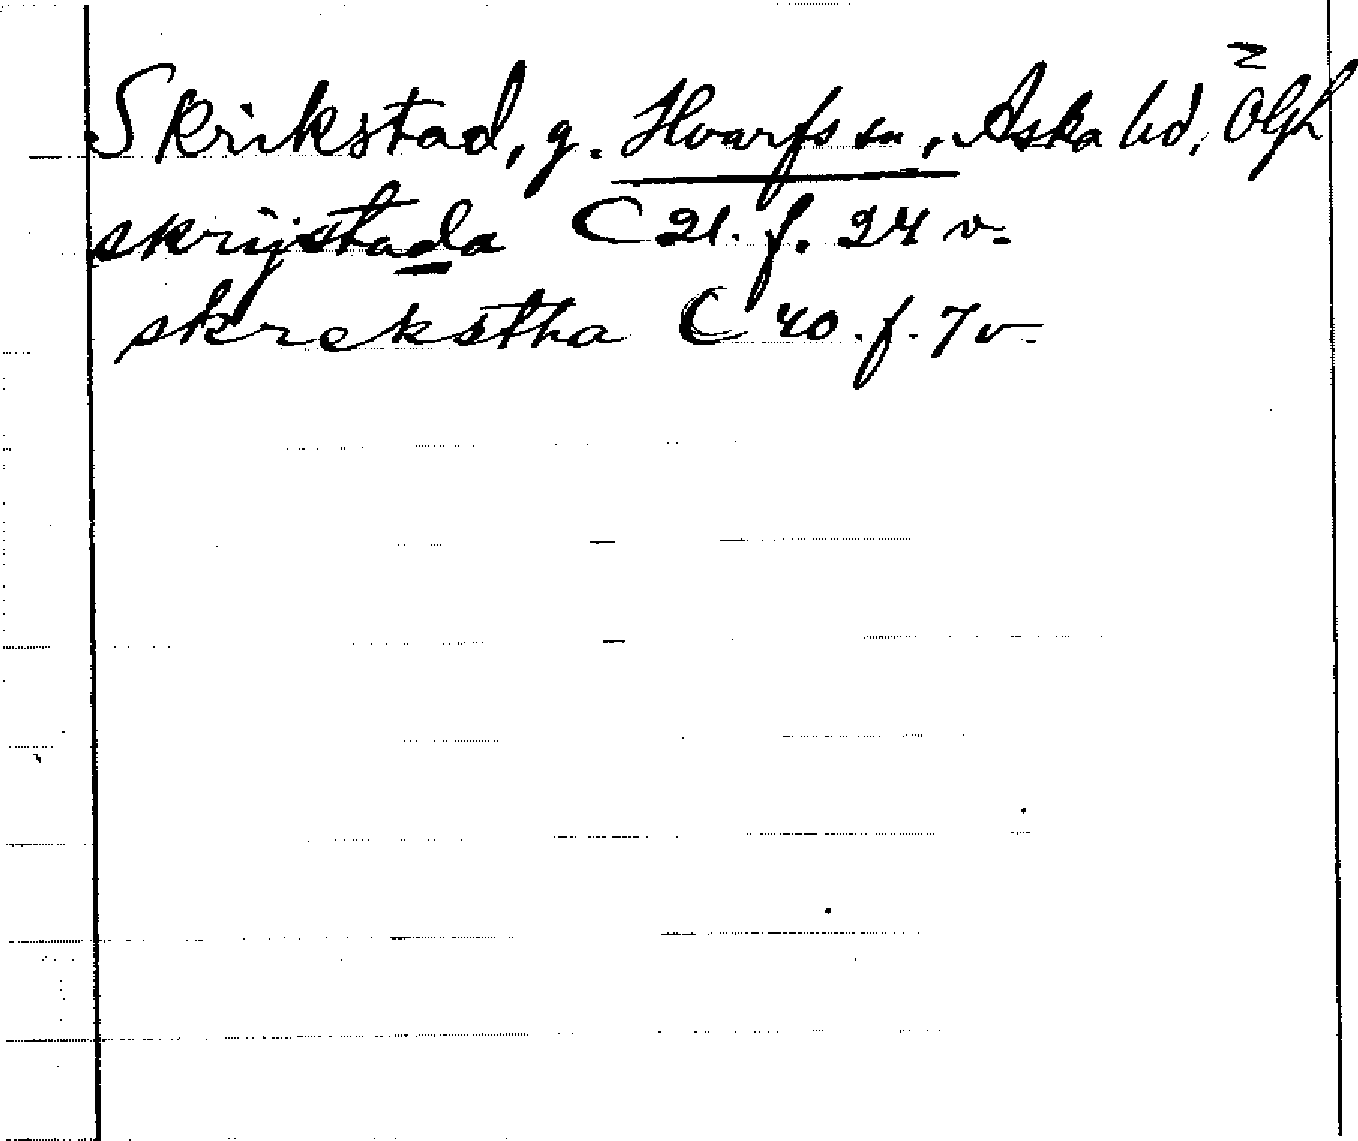 Skrikstad, g. Hvarfs sn, Aska hd, Ögh
skrijstada C 21. f. 24 v.
skrekstha C 40. f. 7 v.